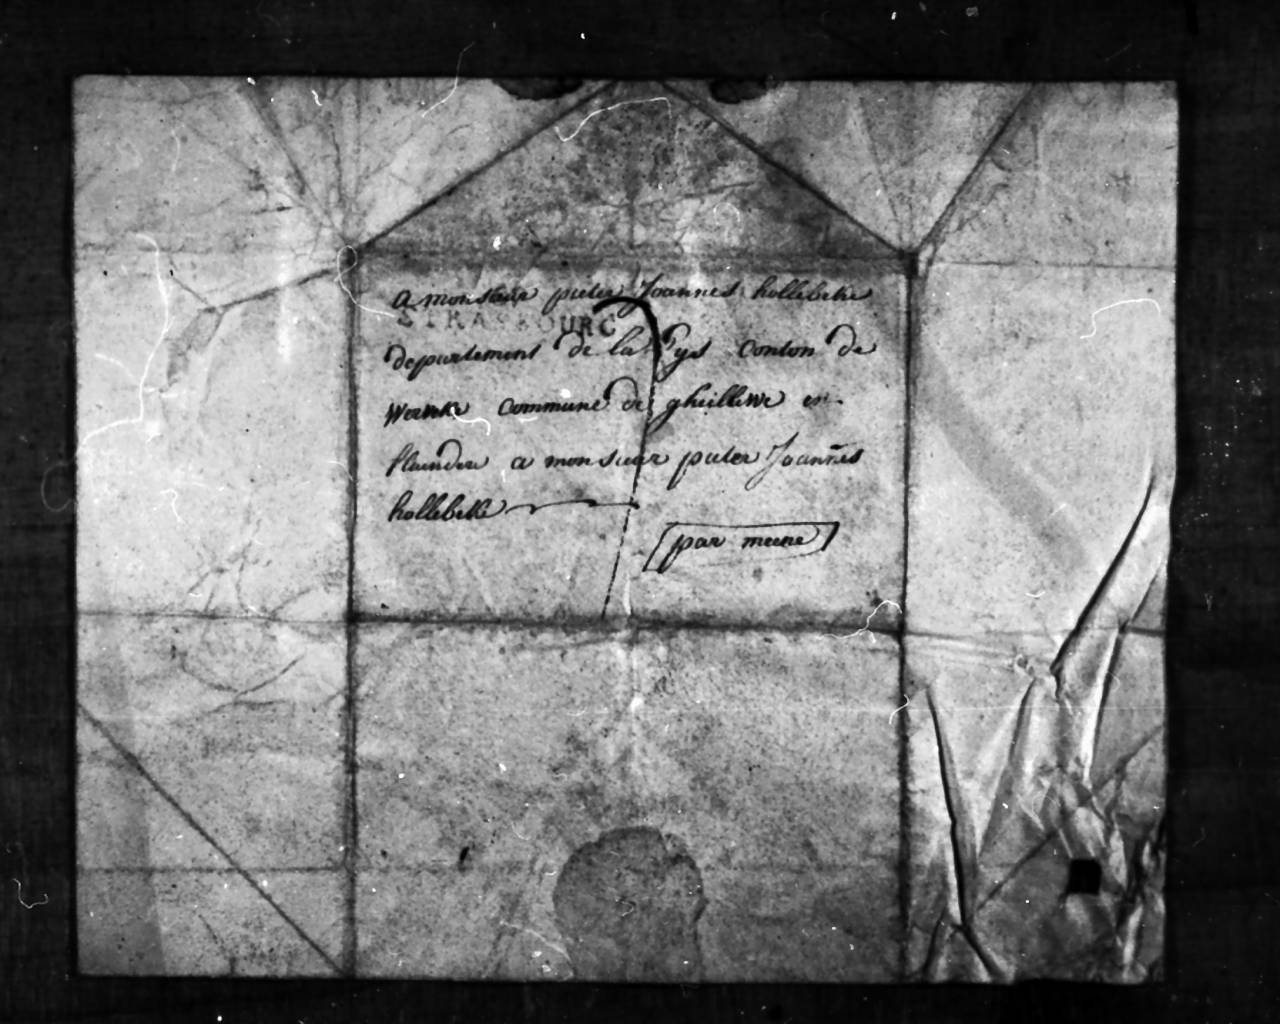 a monsieur pieter Joannes hollebeke
STRASBOURG
departement de la Lys Conton de
Wervke Commune de gheillewe en
flaandre a monsieur pieter Joannes
hollebeke
par meene